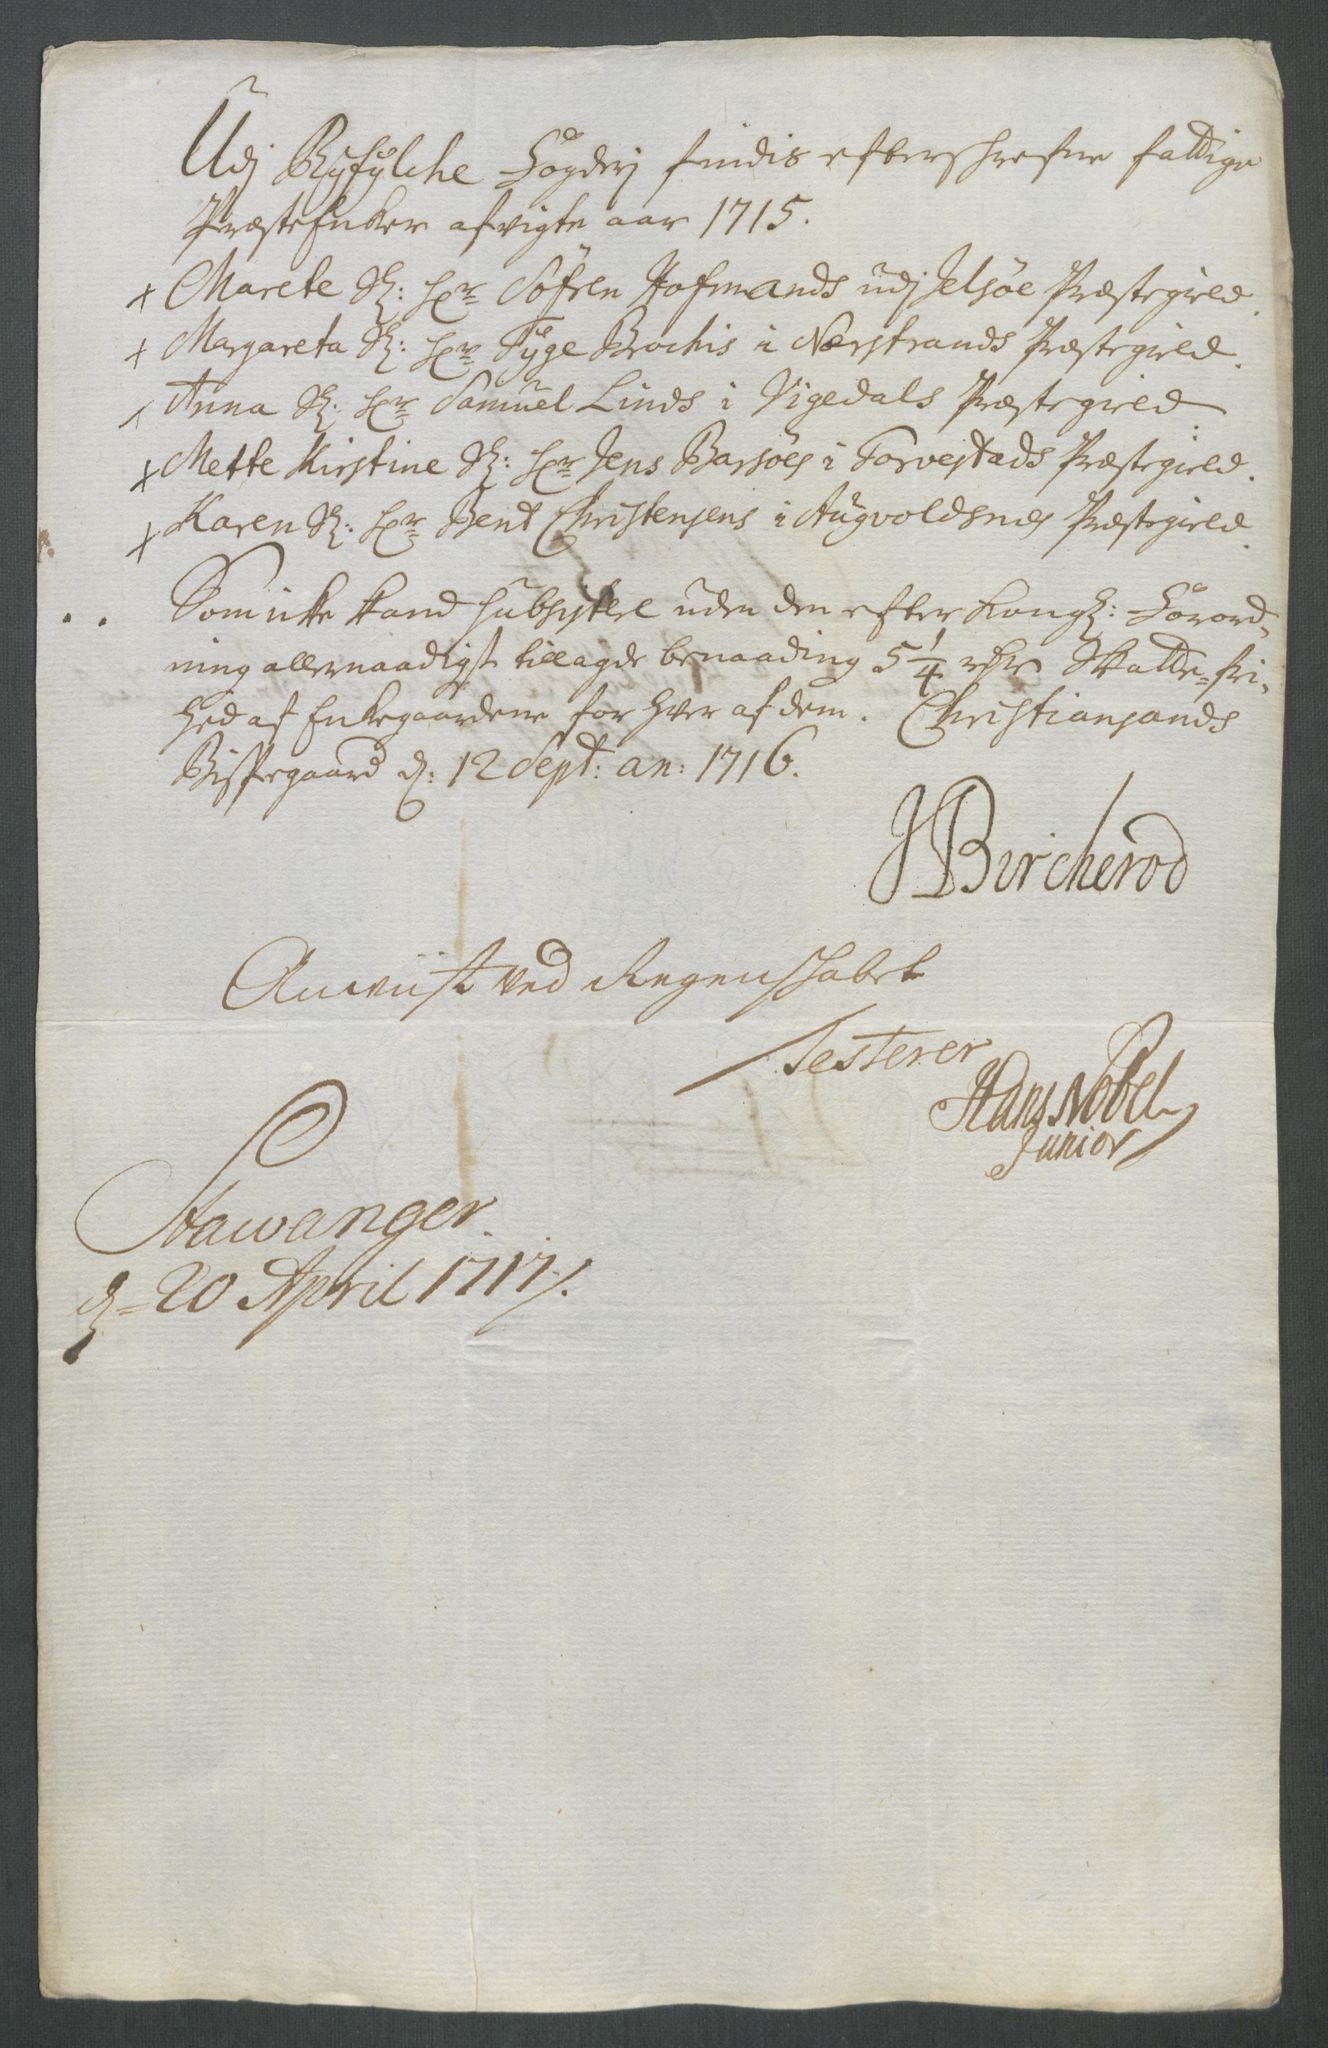 Udj Ryfylche Fogderj findis efterschrefne fattige
Præsteenker afvigte aar 1715.
+ Marete Sl: Hr Søfren Hofmands udj Jelsøe Præstegield.
+ Margareta Sl: Hr Tyge Brochis i Nærstrands Præstegield.
+ Anna Sl: Hr Samuel Linds i Vigedals Præstegield
+ Mette Kirstine Sl: Hr Jens Barsøes i Torvestads Præstegield.
+ Karen Sl: Hr Bent Christensens i Augvoldsnes Præstegield.
Som icke kand subsistere uden den efter Kongl: Forord-
ning allernaadigst tillagde benaading 5 1/4 rdr Skatte-fri-
hed af Enkegaardene for hver af dem. Christiansands
Bispegaard d: 12 Sept: an: 1716.
JBircherod
Anviist ved Regenschabet
Testerer
Hans Nobel
Junior
Stawanger
d= 20 April 1717/.